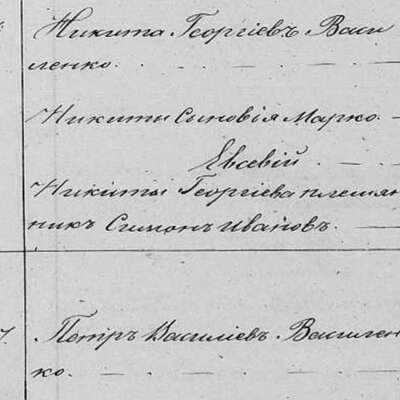 Никита Георгіевъ Васи
ленко.
Никиты сыновія Марко.
Евсевій.
Никиты Георгіева племян
никъ Симонъ Ивановъ.
7. Петръ Василіевъ Василен
ко.